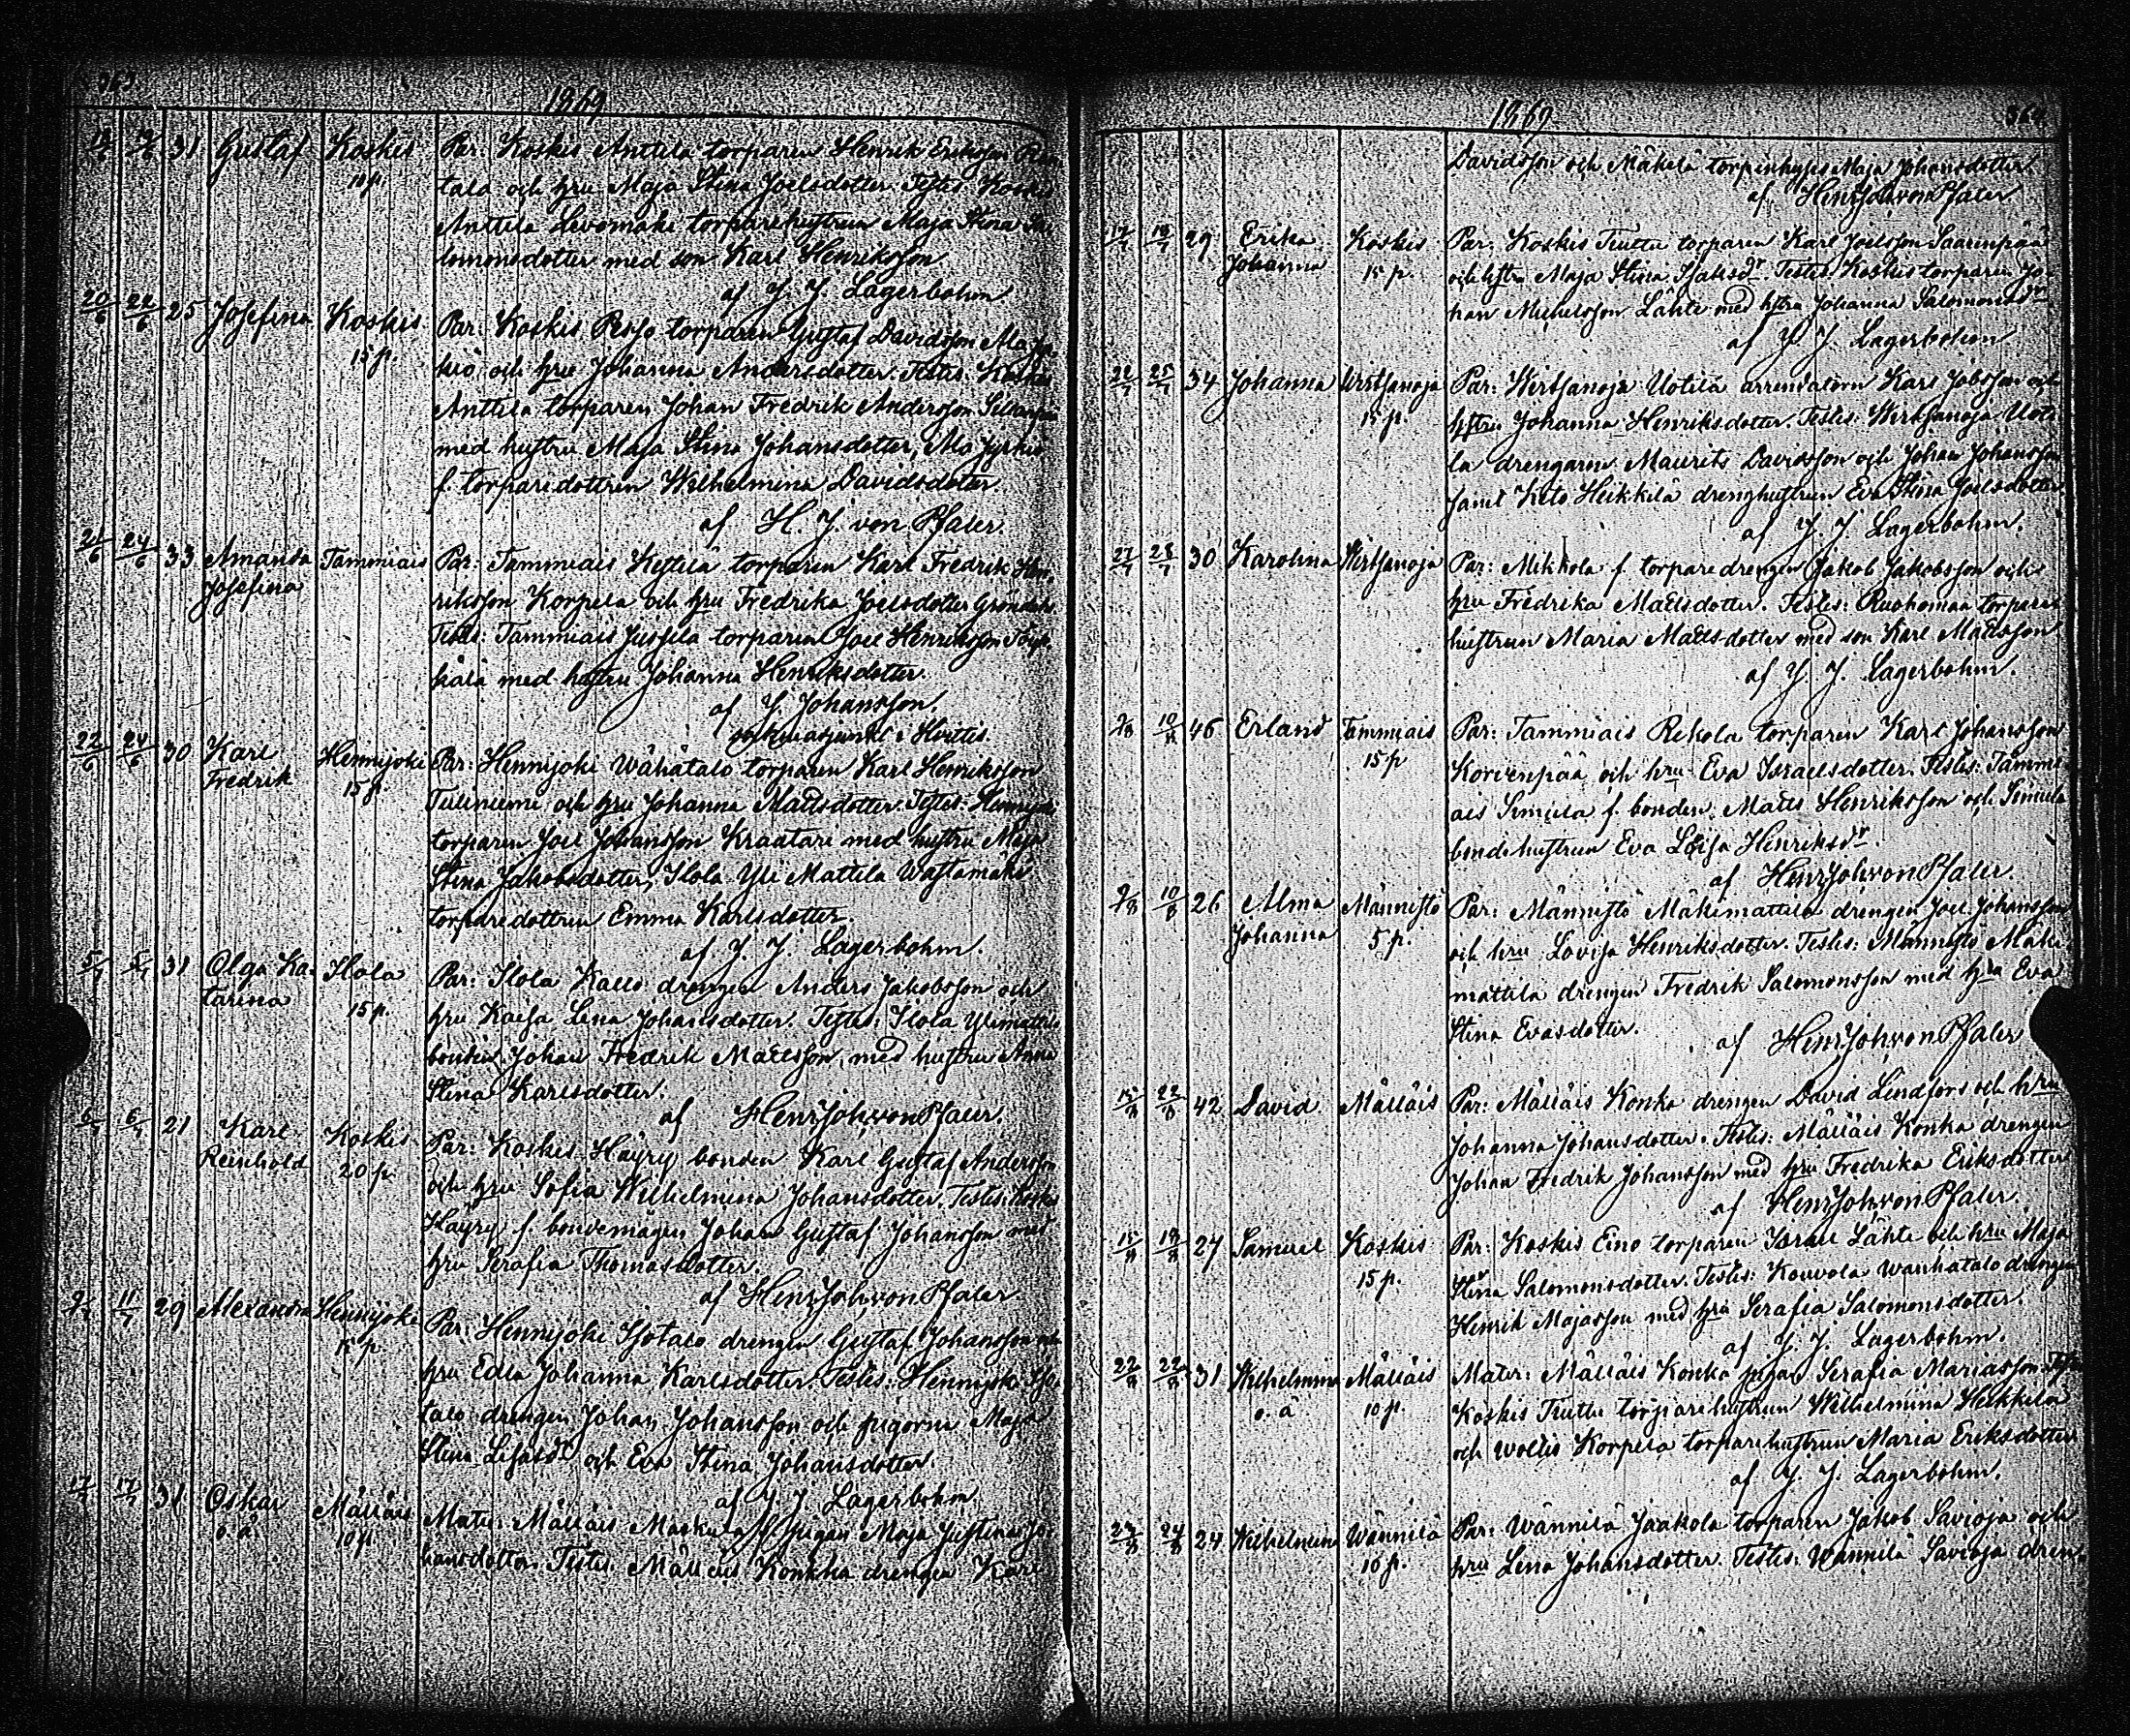 363
1869
18/6 19/6 31 Gustaf Koskis Par: Koskis Anttila torparen Henrik Eriksson
10 p. tala och hru Maja Stina Joelsdotter. Testes: Koskis
Anttila Levomäki torparehustrun Maja Stina Sa-
lomonsdotter med son Karl Henriksson
af J. J. Lagerbohm
20/6 22/6 25 Josefina Koskis Par: Koskis Perho torparen Gustaf Davidsson
15 p. kiö och hru Johanna Andersdotter. Testes: Koskis
Anttila torparen Johan Fredrik Andersson
med hustru Maja Stina Johansdotter,
f. torparedottren Wilhelmina Davidsdotter.
af H. J. von Pfaler.
21/6 24/6 33 Amanda Tammiais Par: Tammiais Kettilä torparen Karl Fredrik Hen-
Josefina riksson Korpela och hru Fredrika Joelsdotter Gröndahl
Testes: Tammiais Jussila torparen Joel Henriksson
med hustru Johanna Henriksdotter.
af J. Johansson.
i Hvittis.
22/6 24/6 30 Karl Hennijoki Par: Hennijoki Wähätalo torparen Karl Henriksson
Fredrik 15 p. Tuliniemi och hru Johanna Mattsdotter. Testes: Hennijoki
torparen Joel Johansson Kraatari med hustru Maja
Stina Jakobsdotter, Ilola Yli Mattila Wastamäki
torparedottren Emma Karlsdotter.
af J. J. Lagerbohm.
5/7 5/7 31 Olga Ka- Ilola Par: Ilola Kallo drengen Anders Jakobsson och
tarina 15 p. hru Kaisa Lena Johansdotter. Testes: Ilola Ylimattila
bonden Johan Fredrik Mattsson, med hustru Anna
Stina Karlsdotter.
af Henr Joh von Pfaler.
6/7 6/7 21 Karl Koskis Par: Koskis Häyry bonden Karl Gustaf Andersson
Reinhold 20 p. och hru Sofia Wilhelmina Johansdotter. Testes: Koskis
Häyry f. bondemågen Johan Gustaf Johansson med
hru Serafia Thomasdotter.
af Henr Joh von Pfaler
9/7 11/7 29 Alexandra Hennijoki Par: Hennijoki Isotalo drengen Gustaf Johansson och
15 p. hru Edla Johanna Karlsdotter. Testes: Hennijoki Iso-
talo drengen Johan Johansson och pigorna Maja
Stina Lisasdr och Eva Stina Johansdotter.
af J. J. Lagerbohm.
17/7 17/7 31 Oskar Mälläis Mater: Mälläis Markula f. pigan Maja Justina Jo-
o. ä. 10 p. hansdotter. Testes: Mälläis Konkka drengen Karl
1869
364
Davidsson och Mäkelä torpinhyses Maja Johansdotter.
af Henr Joh von Pfaler
17/7 18/7 29 Erika Koskis Par: Koskis Tiuttu torparen Karl Joelsson Saarenpää
Johanna 15 p. och hstru Maja Stina Isaksdr. Testes: Koskis torparen Jo-
han Michelsson Lähte med hstru Johanna Salomonsdr
af J. J. Lagerbohm
22/7 25/7 34 Johanna Wirtsanoja Par: Wirtsanoja Uotila arrendatorn Karl Jobsson och
15 p. hstru Johanna Henriksdotter. Testes: Wirtsanoja Uoti-
la drengarne Maurits Davidsson och Johan Johansson
samt Keto Heikkilä drenghustrun Eva Stina Joelsdotter.
af J. J. Lagerbohm.
27/7 28/7 30 Karolina Wirtsanoja Par: Mikkola f. torparedrengen Jakob Jakobsson och
hru Fredrika Mattsdotter. Testes: Ruohomaa torpare-
hustrun Maria Mattsdotter med son Karl Mattsson
af J. J. Lagerbohm.
9/8 10/8 46 Erland Tammiais Par: Tammiais Rekola torparen Karl Johansson
15 p Korvenpää och hru Eva Israelsdotter. Testes: Tammi-
ais Simula f. bonden Matts Henriksson och Simula
bondehustrun Eva Lovisa Henriksdr.
af Henr Joh von Pfaler.
9/8 10/8 26 Alma Männistö Par: Männistö Mäkimattila drengen Joel Johansson
Johanna 5 p. och hru Lovisa Henriksdotter. Testes: Männistö Mäki-
mattila drengen Fredrik Salomonsson med hru Eva
Stina Evasdotter.
af Henr Joh von Pfaler
15/8 22/8 42 David Mälläis Par: Mälläis Konka drengen David Lindfors och hru
Johanna Johansdotter. Testes: Mälläis Konka drengen
Johan Fredrik Johansson med hru Fredrika Eriksdotter
af Henr Joh von Pfaler.
15/8 18/8 27 Samuel Koskis Par: Koskis Eino torparen Israel Lähte och hru Maja
15 p. Stina Salomonsdotter. Testes: Kouvola Wanhatalo drengen
Henrik Majasson med hru Serafia Salomonsdotter.
af J. J. Lagerbohm.
22/8 22/8 31 Wilhelmina Mälläis Mater: Mälläis Konka pigan Serafia Mariasson.
o. ä 10 p. Koskis Tiuttu torparehustrun Wilhelmina Heikkilä
och Woltis Korpela torparehustrun Maria Eriksdotter
af J. J. Lagerbohm.
23/8 24/8 24 Wilhelmina Wännilä Par: Wännilä Jaakola torparen Jakob Savioja och
10 p. hru Lena Johansdotter. Testes: Wännilä Savioja dren-